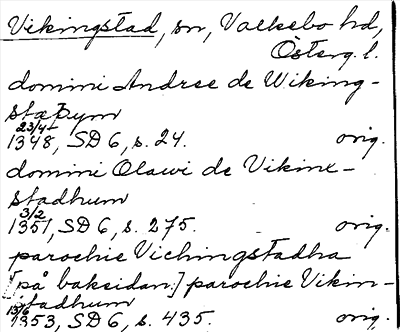 Vikingstad, sn, Valkebo hd,
Österg. l.
domini Andree de Wiking-
staþum
23/4
1348, SD 6, s. 24. orig.
domini Olawi de Vikinx-
stadhum
3/2
1351, SD 6, s. 275. orig.
parochie Vichingstadha
[på baksidan:] parochie Vikin-
stadhum
13/6
1353, SD 6, s. 435. orig.